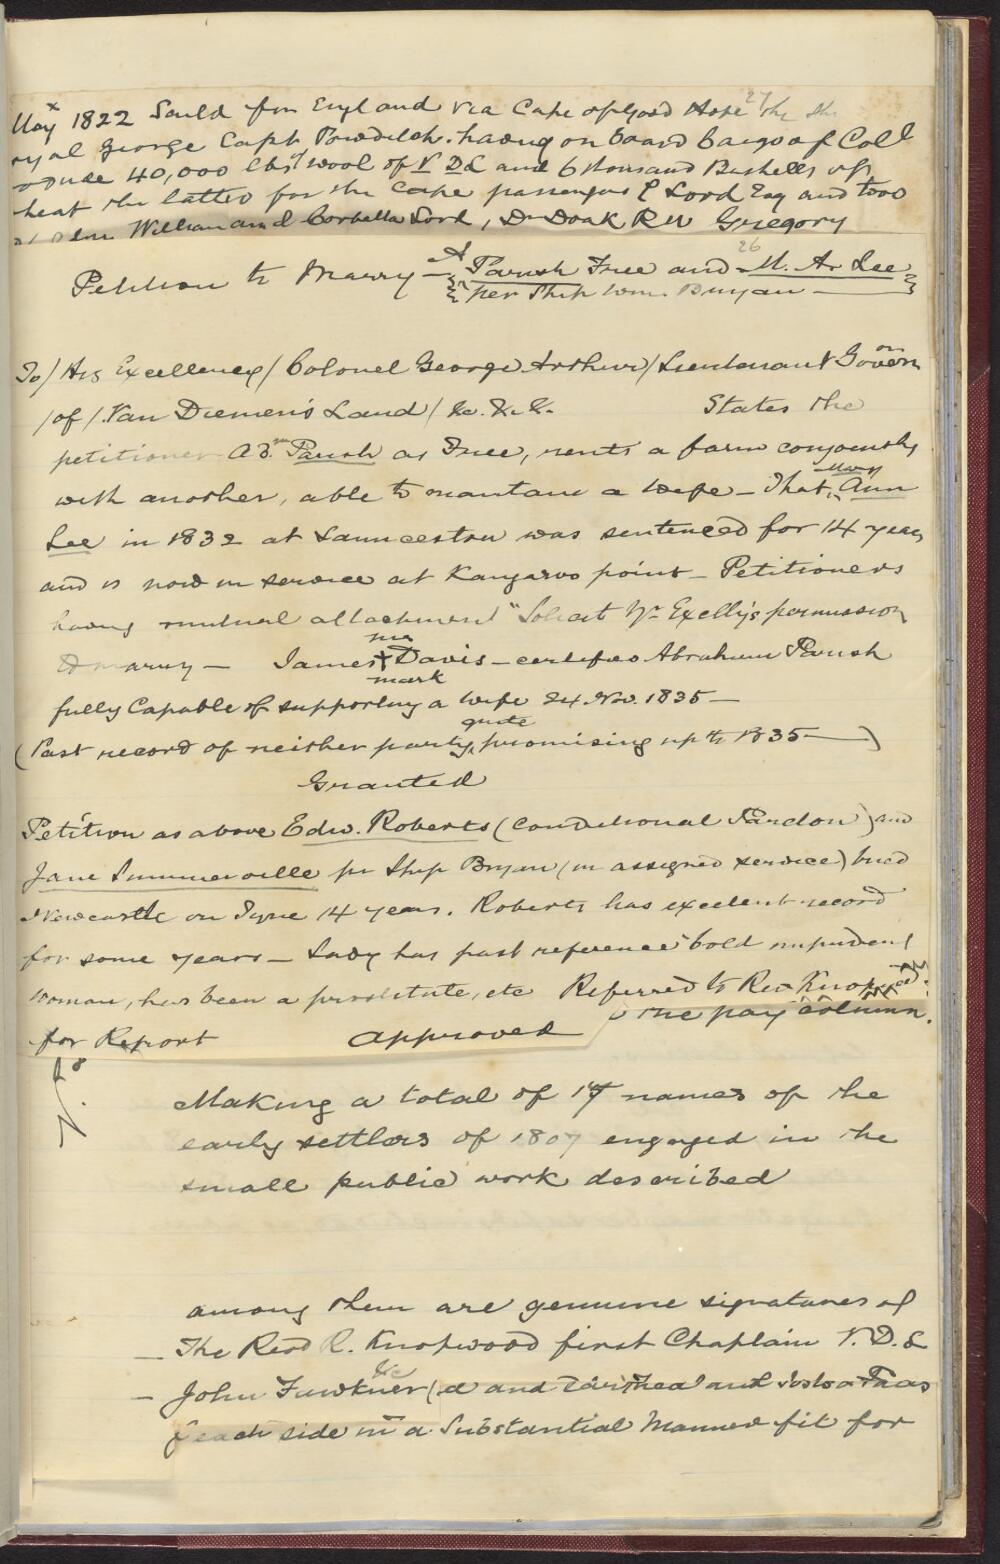 May 1822 Saild for England via Cape of Good Hope 27 the sh
oyal George Capt Powditch. having on board Cargo of Coll
40,000 lbs wool of V D L and 6 thousand Bushells of
heat the latter for the Cape passengers E Lord Esq and two
William and Corbetta Lord, Dr Doak R W Gregory
26
Petition to Marry — A Parish Free and M. A. Lee
per Ship Wm. Bryan —
To/ His Excellency/ Colonel George Arthur/ Lieutenant Governor
/of/ Van Diemen's Land/ &c. &c. &.          States the
petitioner Abm Parish as Free, rents a farm conjointly
with another, able to maintain a wife — That Mary Ann
Lee in 1832 at Launceston was sentenced for 14 years
and is now in service at Kangaroo point — Petitioners
having mutual attachment "Solicit Yr Exelly's permission
to marry — James his + mark Davis — certifies Abraham Parish
fully Capable of supporting a wife 24 Nov. 1835 —
(Past record of neither party quite promising up to 1835 — )
Granted
Petition as above Edw. Roberts (Conditional Pardon) and
Jane Summerville per Ship Bryan (in assigned service) tried
Newcastle on Tyne 14 years. Roberts has excelent record
for some years — Lady has past reference "bold impudent
woman, has been a prostitute, etc Referred to Rev Knopwood
the pay column.
for Report          approved
Making a total of 17 names of the
early settlers of 1807 engaged in the
small public work described
among them are genuine signatures of
— The Revd R. Knopwood first Chaplain V. D. L
— John Fawkner &c
each side in a Substantial Manner fit for